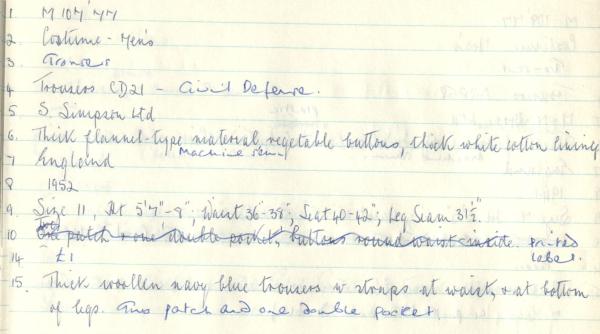 1 M 107'77
2. Costume - Men's
3 Trousers
4 Trousers CD21 - Civil Defense.
5 S. Simpson Ltd
6. Thick flannel-type material, vegetable buttons, thick white cotton lining
7 England Machine sewn
8 1952
9. Size 11, Ht 5'7"-8"; Waist 36-38"; Seat 40-42"; Leg Seam 31½".
10 patch & one double pocket, buttons round waist inside. Printed label.
14. £1
15. Thick woollen navy blue trousers w straps at waist, & at bottom
of legs. Two patch and one double pocket